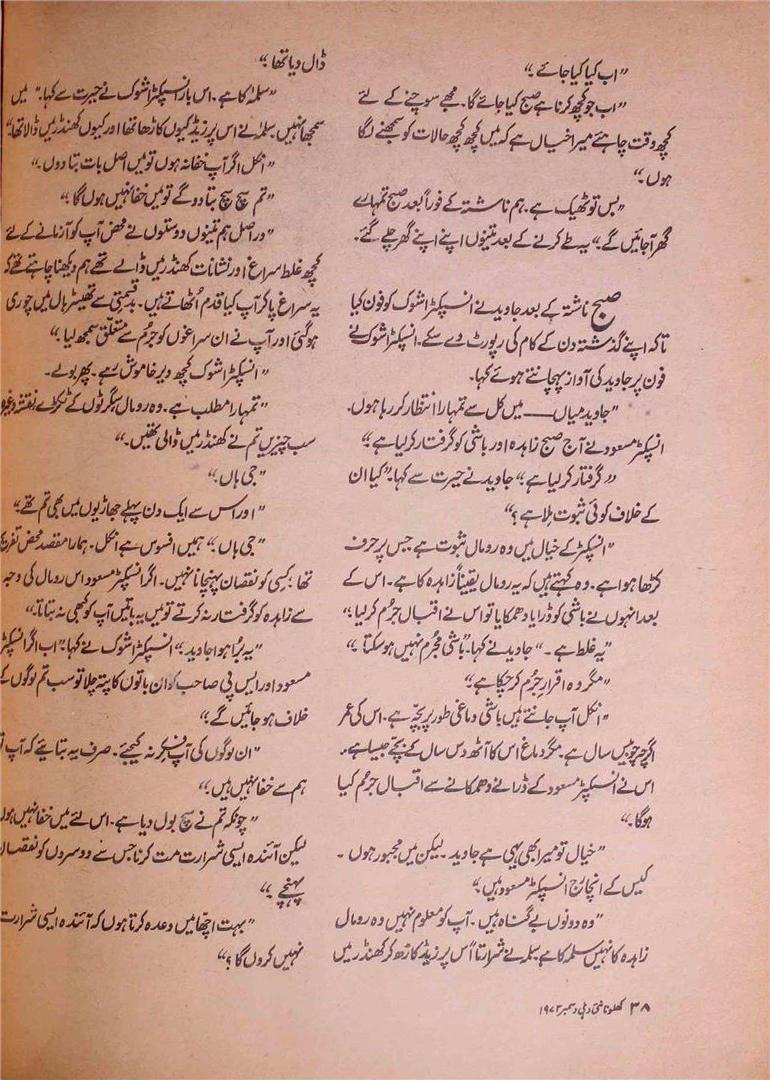 ”اب کیا کیا جائے۔“
”اب جو کچھ کرنا ہے صبح کیا جائے گا۔ مجھے سوچنے کے لئے
کچھ وقت چاہئے میرا خیال ہے کہ میں کچھ کچھ حالات کو سمجھنے لگا
ہوں۔“
”بس تو ٹھیک ہے۔ ہم ناشتہ کے فوراً بعد صبح تمہارے
گھر آجائیں گے۔“ یہ طے کرنے کے بعد تینوں اپنے اپنے گھر چلے گئے۔
صبح ناشتہ کے بعد جاوید نے انسپکٹر اشوک کو فون کیا
تاکہ اپنے گذشتہ دن کے کام کی رپورٹ دے سکے۔ انسپکٹر اشوک نے
فون پر جاوید کی آواز پہچانتے ہوئے کہا۔
”جاوید میاں ——— میں کل سے تمہارا انتظار کر رہا ہوں۔
انسپکٹر مسعود نے آج صبح زاہدہ اور باشی کو گرفتار کر لیا ہے۔“
”گرفتار کر لیا ہے۔“ جاوید نے حیرت سے کہا۔ ”کیا ان
کے خلاف کوئی ثبوت ملا ہے؟“
”انسپکٹر کے خیال میں وہ رومال ثبوت ہے جس پر حرف
کڑھا ہوا ہے۔ وہ کہتے ہیں کہ یہ رومال یقیناً زاہدہ کا ہے۔ اس کے
بعد انہوں نے باشی کو ڈرایا دھمکایا تو اس نے اقبال جرُم کر لیا۔“
”یہ غلط ہے۔“ جاوید نے کہا۔ ”باشی مجُرم نہیں ہو سکتا۔“
”مگر وہ اقرار جرُم کر چکا ہے۔“
”انکل آپ جانتے ہیں باشی دماغی طور پر بچّہ ہے۔ اس کی عمر
اگرچہ چوبیس سال ہے۔ مگر دماغ اس کا آٹھ دس سال کے بچّے جیسا ہے۔
اس نے انسپکٹر مسعود کے ڈرانے دھمکانے سے اقبال جرُم کیا
ہوگا۔“
”خیال تو میرا بھی یہی ہے جاوید۔ لیکن میں مجبور ہوں۔
کیس کے انچارج انسپکٹر مسعود ہیں۔“
”وہ دونوں بے گناہ ہیں۔ آپ کو معلوم نہیں وہ رومال
زاہدہ کا نہیں سلمہ کا ہے سلمہ نے شرارتاً اس پر زیڈ کاڑھ کر کھنڈر میں
ڈال دیا تھا۔“
”سلمہ کا ہے۔ اس بار انسپکٹر اشوک نے حیرت سے کہا۔ ”میں
سمجھا نہیں سلمہ نے اس پر زیڈ کیوں کاڑھا تھا اور کیوں کھنڈر میں ڈالا تھا۔“
”انکل اگر آپ خفا نہ ہوں تو میں اصل بات بتا دوں۔“
”تم سچ سچ بتا دو گے تو میں خفا نہیں ہوں گا۔“
”دراصل ہم تینوں دوستوں نے محض آپ کو آزمانے کے لئے
کچھ غلط سراغ اور نشانات کھنڈر میں ڈالے تھے ہم دیکھنا چاہتے تھے کہ
یہ سراغ پا کر آپ کیا قدم اُٹھاتے ہیں۔ بدقسمتی سے تھیٹر ہال میں چوری
ہو گئی اور آپ نے ان سراغوں کو جرُم سے متعلق سمجھ لیا۔“
”انسپکٹر اشوک کچھ دیر خاموش رہے۔ پھر بولے۔
”تمہارا مطلب ہے۔ وہ رومال سیگرٹوں کے ٹکڑے نقشہ وغیرہ
سب چیزیں تم نے کھنڈر میں ڈالی تھیں۔“
”جی ہاں۔“
”اور اس سے ایک دن پہلے جھاڑیوں میں بھی تم تھے۔“
”جی ہاں۔“ ہمیں افسوس ہے انکل۔ ہمارا مقصد محض تفریح
تھا۔ کسی کو نقصان پہنچانا نہیں۔ اگر انسپکٹر مسعود اس رومال کی وجہ
سے زاہدہ کو گرفتار نہ کرتے تو میں یہ باتیں آپ کو کبھی نہ بتاتا۔“
”یہ بُرا ہوا جاوید۔“ انسپکٹر اشوک نے کہا۔ ”اب اگر انسپکٹر
مسعود اور ایس پی صاحب کو ان باتوں کا پتہ چلا تو سب تم لوگوں کے
خلاف ہو جائیں گے۔“
”ان لوگوں کی آپ فکر نہ کیجئے۔ صرف یہ بتایئے کہ آپ تو
ہم سے خفا نہیں ہیں۔“
”چونکہ تم نے سچ بول دیا ہے۔ اس لئے میں خفا نہیں ہوں
لیکن آئندہ ایسی شرارت مت کرنا جس سے دوسروں کو نقصان
پہنچے۔“
”بہت اچھّا میں وعدہ کرتا ہوں کہ آئندہ ایسی شرارت
نہیں کروں گا؟“
۳۸ کھلونا نئی دہلی دسمبر ۱۹۷۳